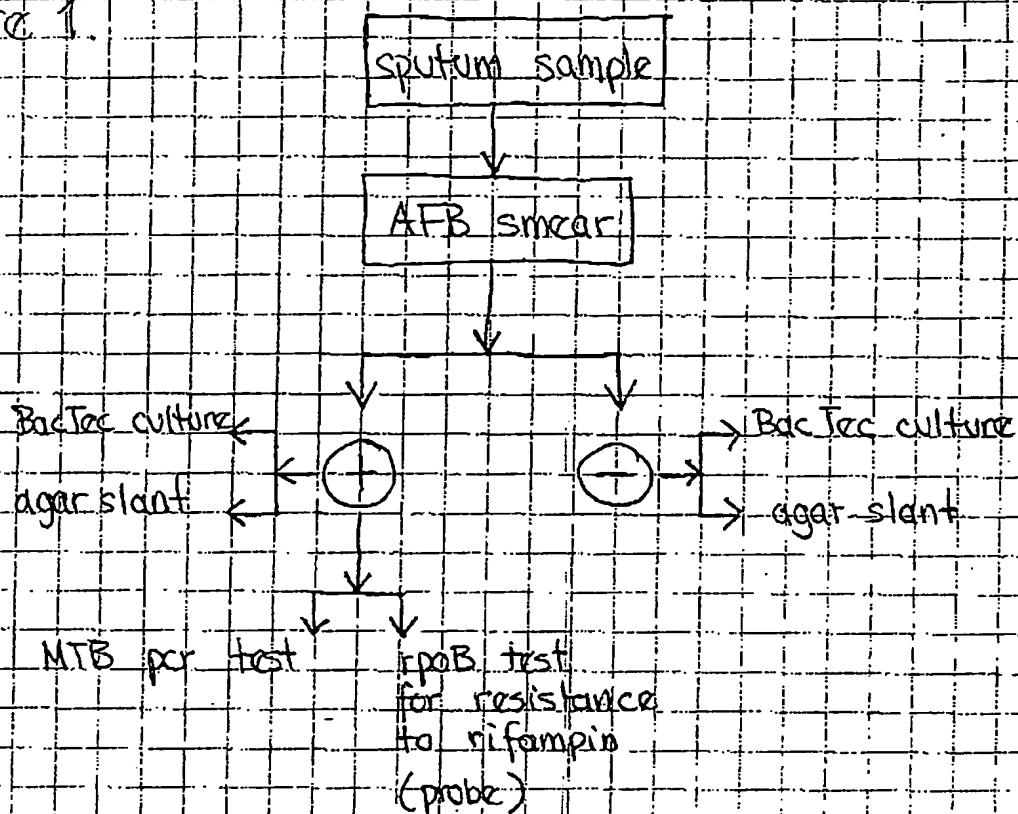 1.
sputum sample
AFB smear
BacTec culture
agar slant
+
−
BacTec culture
agar slant
MTB pcr test
rpoB test
for resistance
to rifampin
(probe)